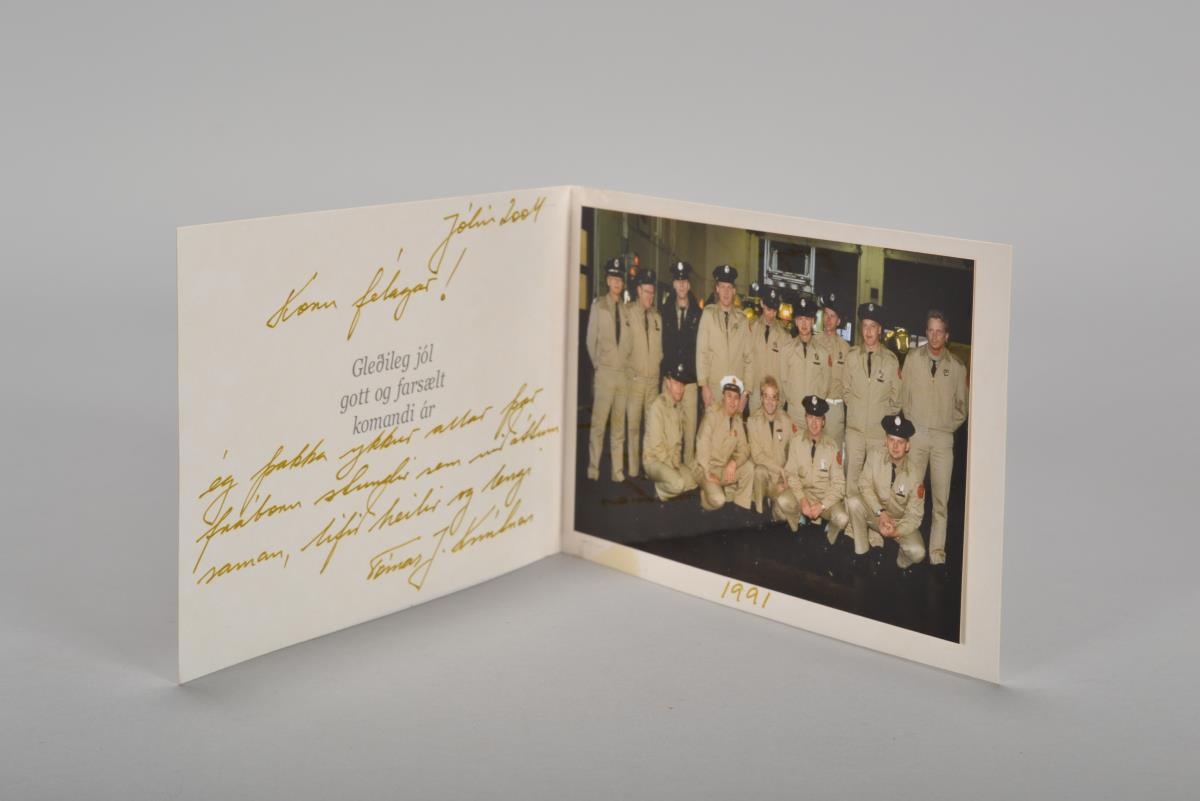 Jólin 2004
Kæru félagar!
Gleðileg jól
gott og farsælt
komandi ár
ég þakka ykkur allar þær
frábæru stundir sem við áttum
saman, lifið heilir og lengi.
Tómas J.
1991